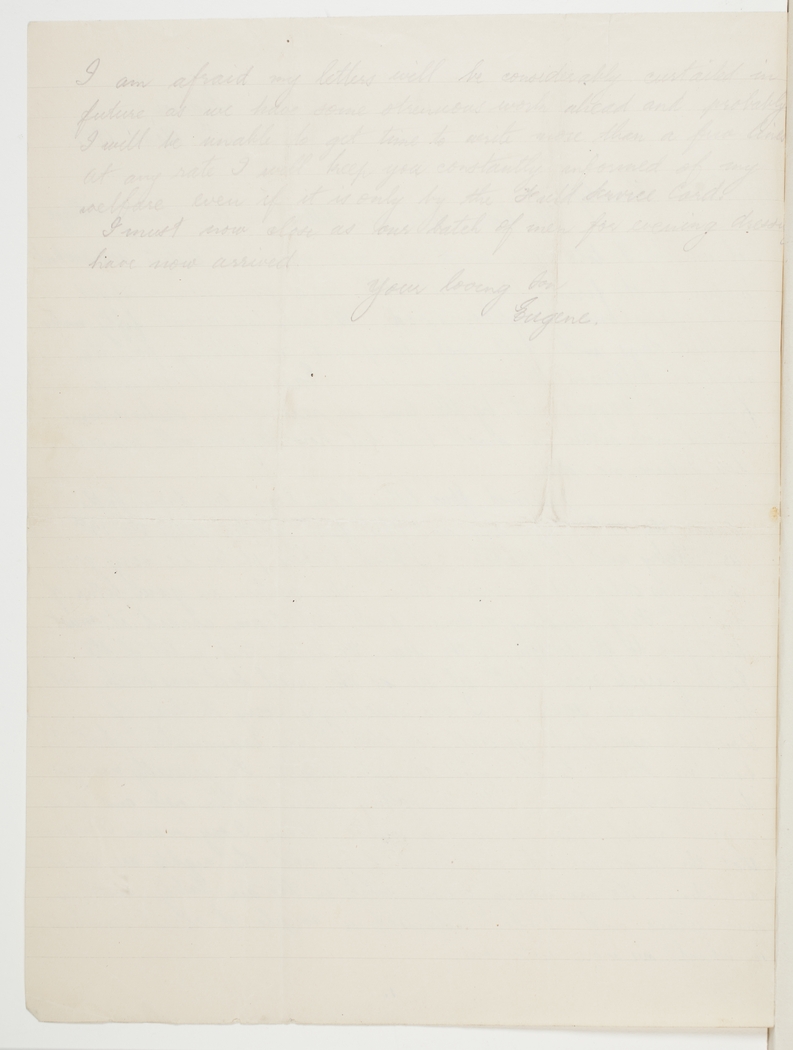 I am afraid my letters will be considerably curtailed in
future as we have some strenuous work ahead and probably
I will be unable to get time to write more than a few lines
at any rate I will keep you constantly informed of my
welfare even if it is only by the Field Service Card.
I must now close as our batch of men for evening
have now arrived.
Your loving Son
Eugene.